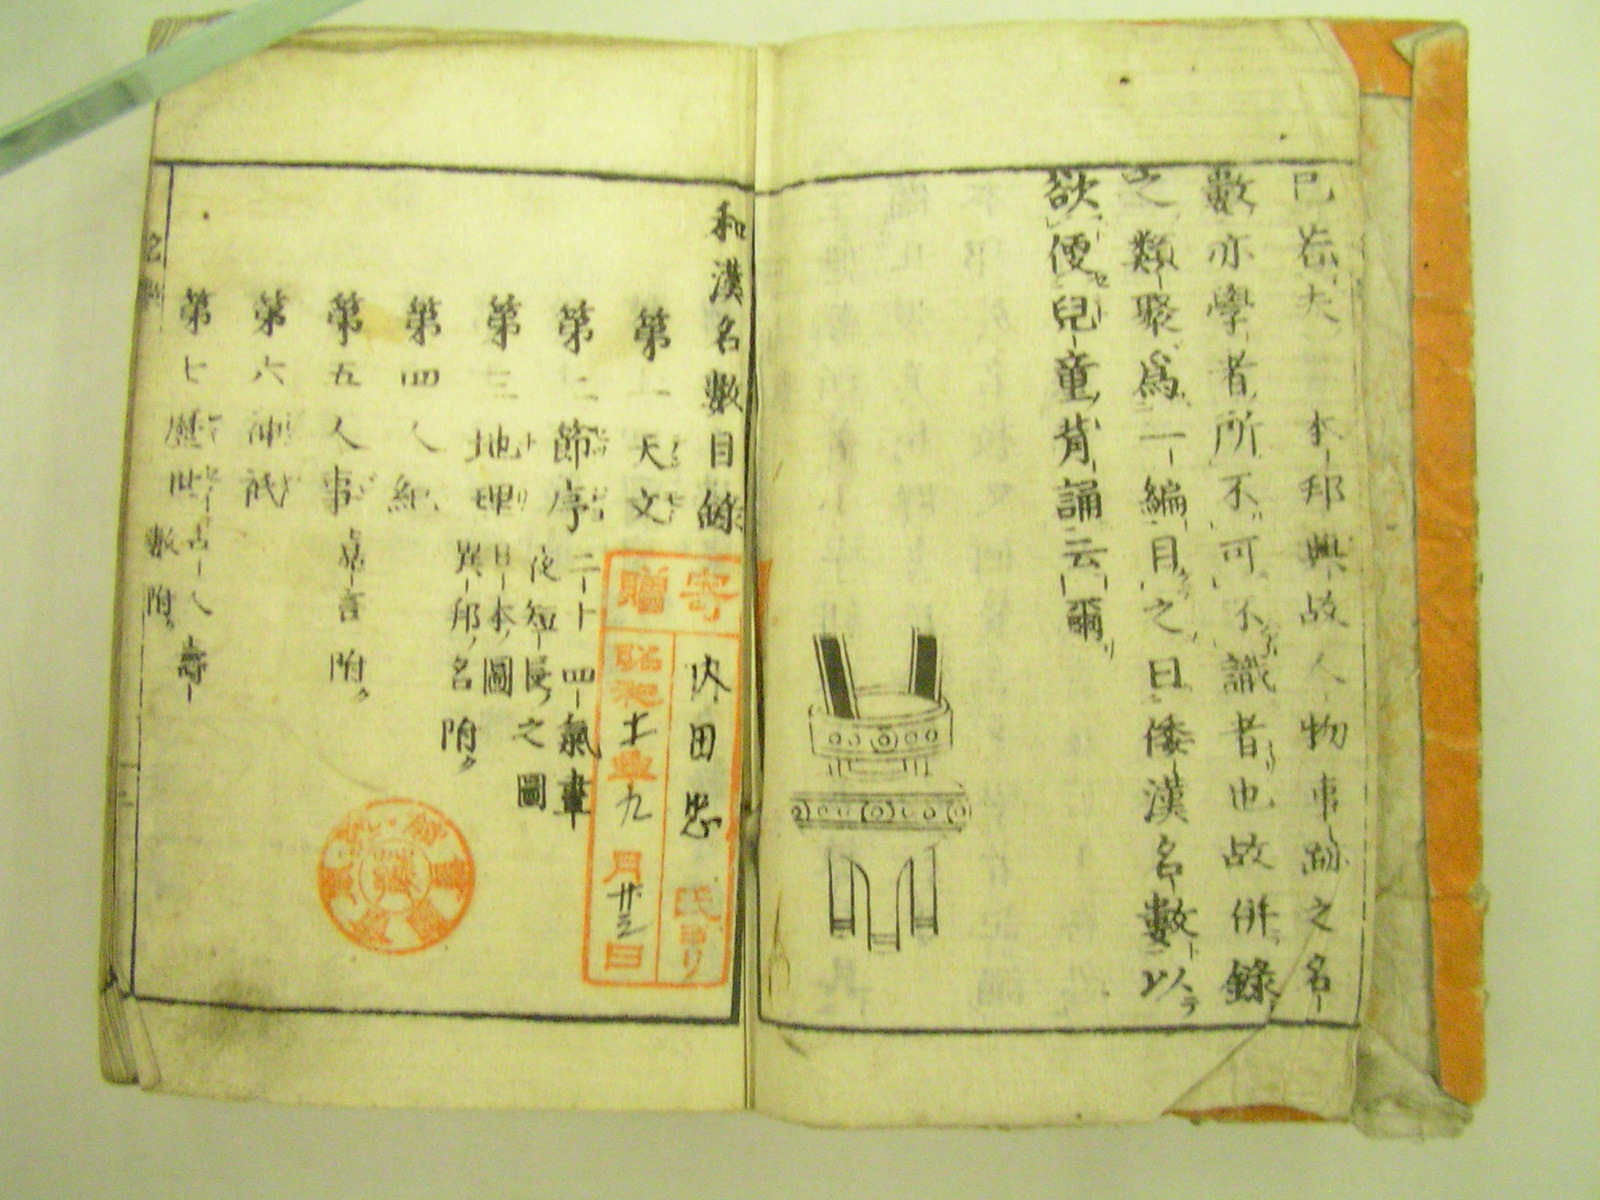 已若夫 本邦興故人物事跡之名
數亦學者所不可不識者也故併錄
之類聚爲一編目之曰倭漢名數以
欲便兒童背誦云爾
和漢名數目錄
第一天文
第二節序 二十四氣晝
夜短長之圖
第三地理 日本圖
異邦名附
第四人紀
第五人事 嘉言附
第六神祇
第七歷世 古人壽
數附
寄贈
内田忠氏ヨリ
昭和十年九月廿三日